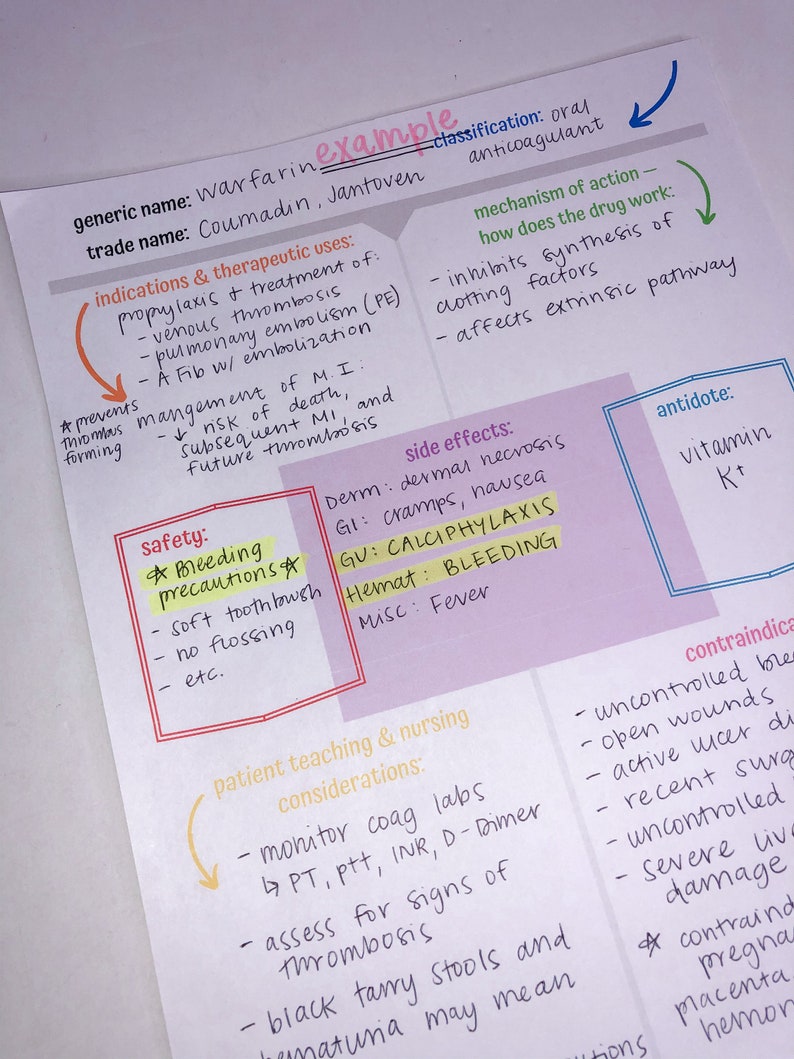 example
generic name: warfarin
classification: oral
anticoagulant
trade name: Coumadin, Jantoven
indications & therapeutic uses:
propylaxis + treatment of:
- venous thrombosis
- pulmonary embolism (PE)
- A Fib w/ embolization
☆ prevents
thrombus
forming
mangement of M.I:
- ↓ risk of death,
subsequent MI, and
future thrombosis
mechanism of action —
how does the drug work:
- inhibits synthesis of
clotting factors
- affects extrinsic pathway
safety:
☆ Bleeding
precautions ☆
- soft toothbrush
- no flossing
- etc.
side effects:
Derm: dermal necrosis
GI: cramps, nausea
GU: CALCIPHYLAXIS
Hemat: BLEEDING
Misc: Fever
antidote:
vitamin
K+
patient teaching & nursing
considerations:
- monitor coag labs
↳ PT, ptt, INR, D-Dimer
- assess for signs of
thrombosis
- black tarry stools and
hematuria may mean
contraindica
- uncontrolled blee
- open wounds
- active ulcer di
- recent surg
- uncontrolled
- severe liv
damage
☆ contraind
pregna
placenta
hemor